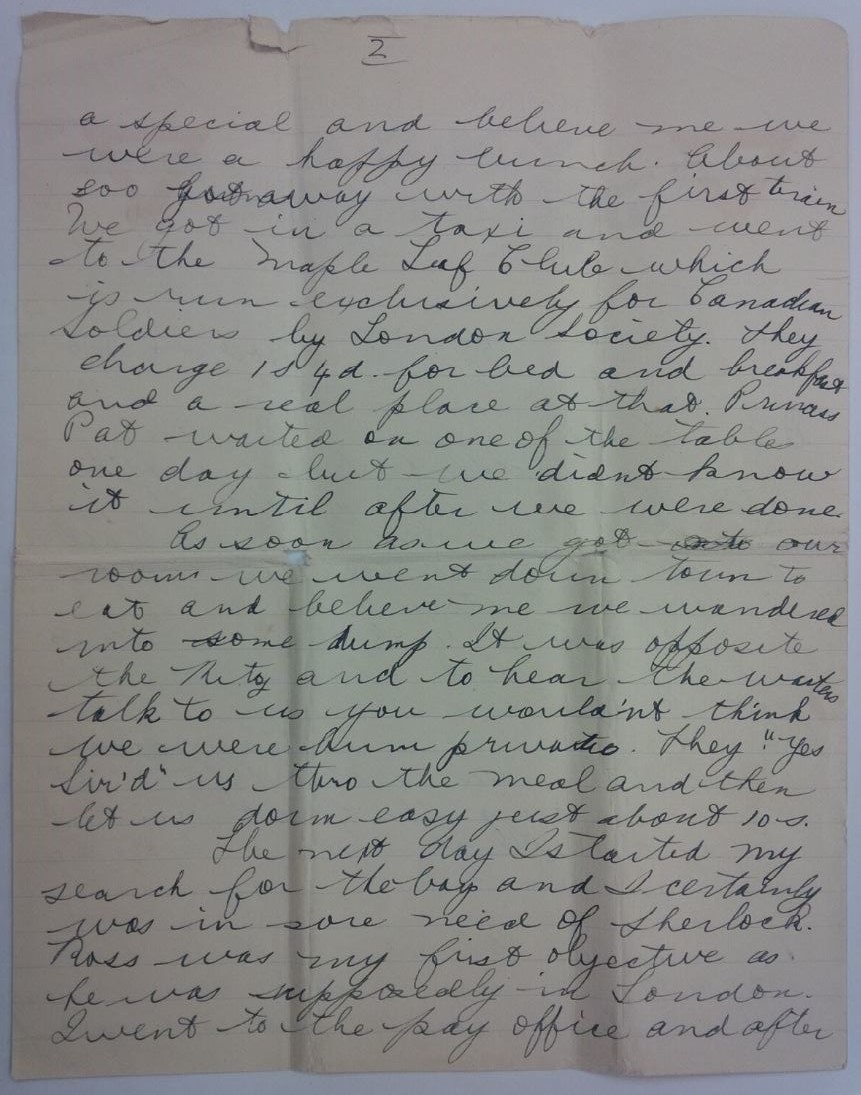 2
a special and believe me we
were a happy bunch. About
500 got away with the first train
We got in a taxi and went
to the Maple Leaf Club which
is run exclusively for Canadian
Soldiers by London Society. They
charge 1s 4d. for bed and breakfast
and a real place at that. Princess
Pat waited on one of the tables
one day but we didnt know
it until after we were done.
As soon as we got our
rooms we went down town to
eat and believe me we wandered
into some dump. It was opposite
the Ritz and to hear the waiters
talk to us you would'nt think
we were bum privates. They "Yes
Sir'd" us thro the meal and then
let us down easy just about 10 s.
The next day I started my
search for the boys and I certainly
was in sore need of Sherlock.
Ross was my first objective as
he was supposedly in London.
I went to the pay office and after